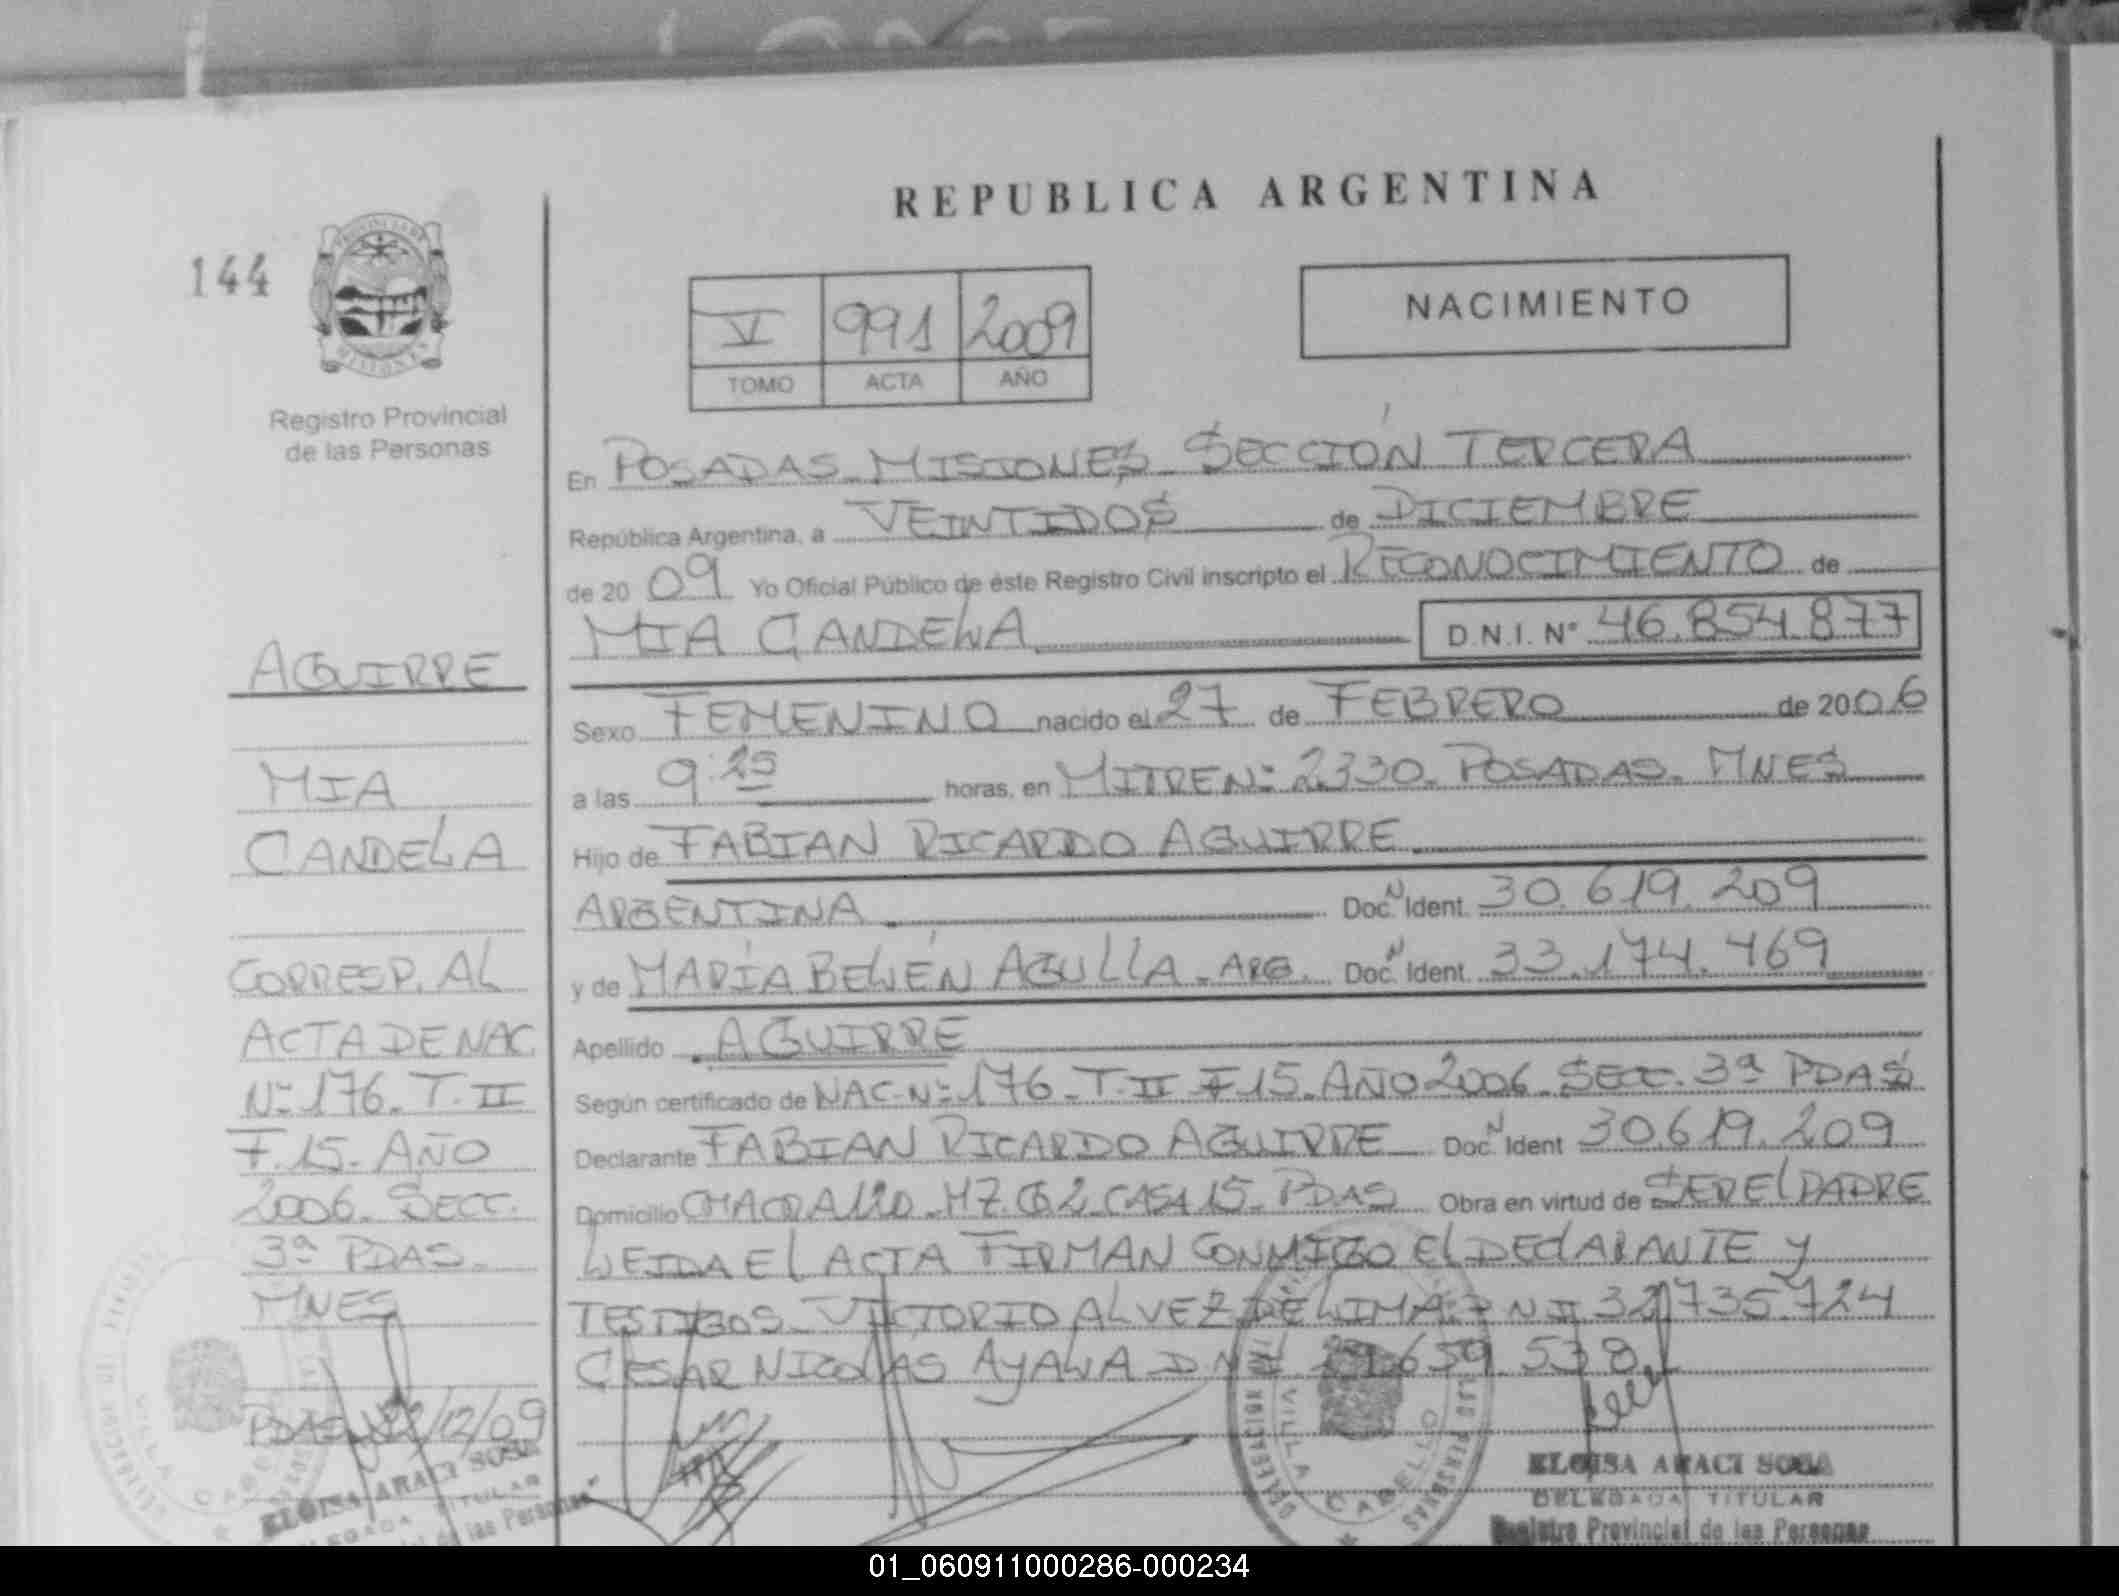 REPUBLICA ARGENTINA
144
PROVINCIA DE
MISIONES
Registro Provincial
de las Personas
V 991 2009
TOMO ACTA AÑO
NACIMIENTO
En POSADAS. MISIONES, SECCIÓN TERCERA
República Argentina, a VEINTIDOS de DICIEMBRE
de 2009 Yo Oficial Público de éste Registro Civil inscripto el RECONOCIMIENTO de
MIA CANDELA D.N.I. Nº 46.854.877
Sexo FEMENINO nacido el 27 de FEBRERO de 2006
a las 9:25 horas, en MITRE Nº 2330. POSADAS. MNES
Hijo de FABIAN RICARDO AGUIRRE
ARGENTINA Doc. N Ident. 30.619.209
y de MARÍA BELÉN AGULLA. ARG. Doc. N Ident. 33.174.469
Apellido AGUIRRE
Según certificado de NAC. Nº 176. T. II F 15. AÑO 2006. SECC. 3ª PDAS
Declarante FABIAN RICARDO AGUIRRE Doc. N Ident 30.619.209
Domicilio CHACRA 120. MZ. 62. CASA 15. PDAS Obra en virtud de SER EL PADRE
LEIDA EL ACTA FIRMAN CONMIGO EL DECLARANTE Y
TESTIGOS. VICTORIO ALVEZ DE LIMA. 735.724
CESAR NICOLAS AYALA DNI 659.538
AGUIRRE
MIA
CANDELA
CORRESP. AL
ACTA DE NAC.
Nº 176. T. II
F. 15. AÑO
2006. SECC.
3ª PDAS.
MNES
PDAS 22/12/09
ELOISA ARACI SOSA
TITULAR
de las Personas
VILLA CABELLO
ELOISA ARACI SOSA
DELEGADA TITULAR
Registro Provincial de las Personas
01_060911000286-000234